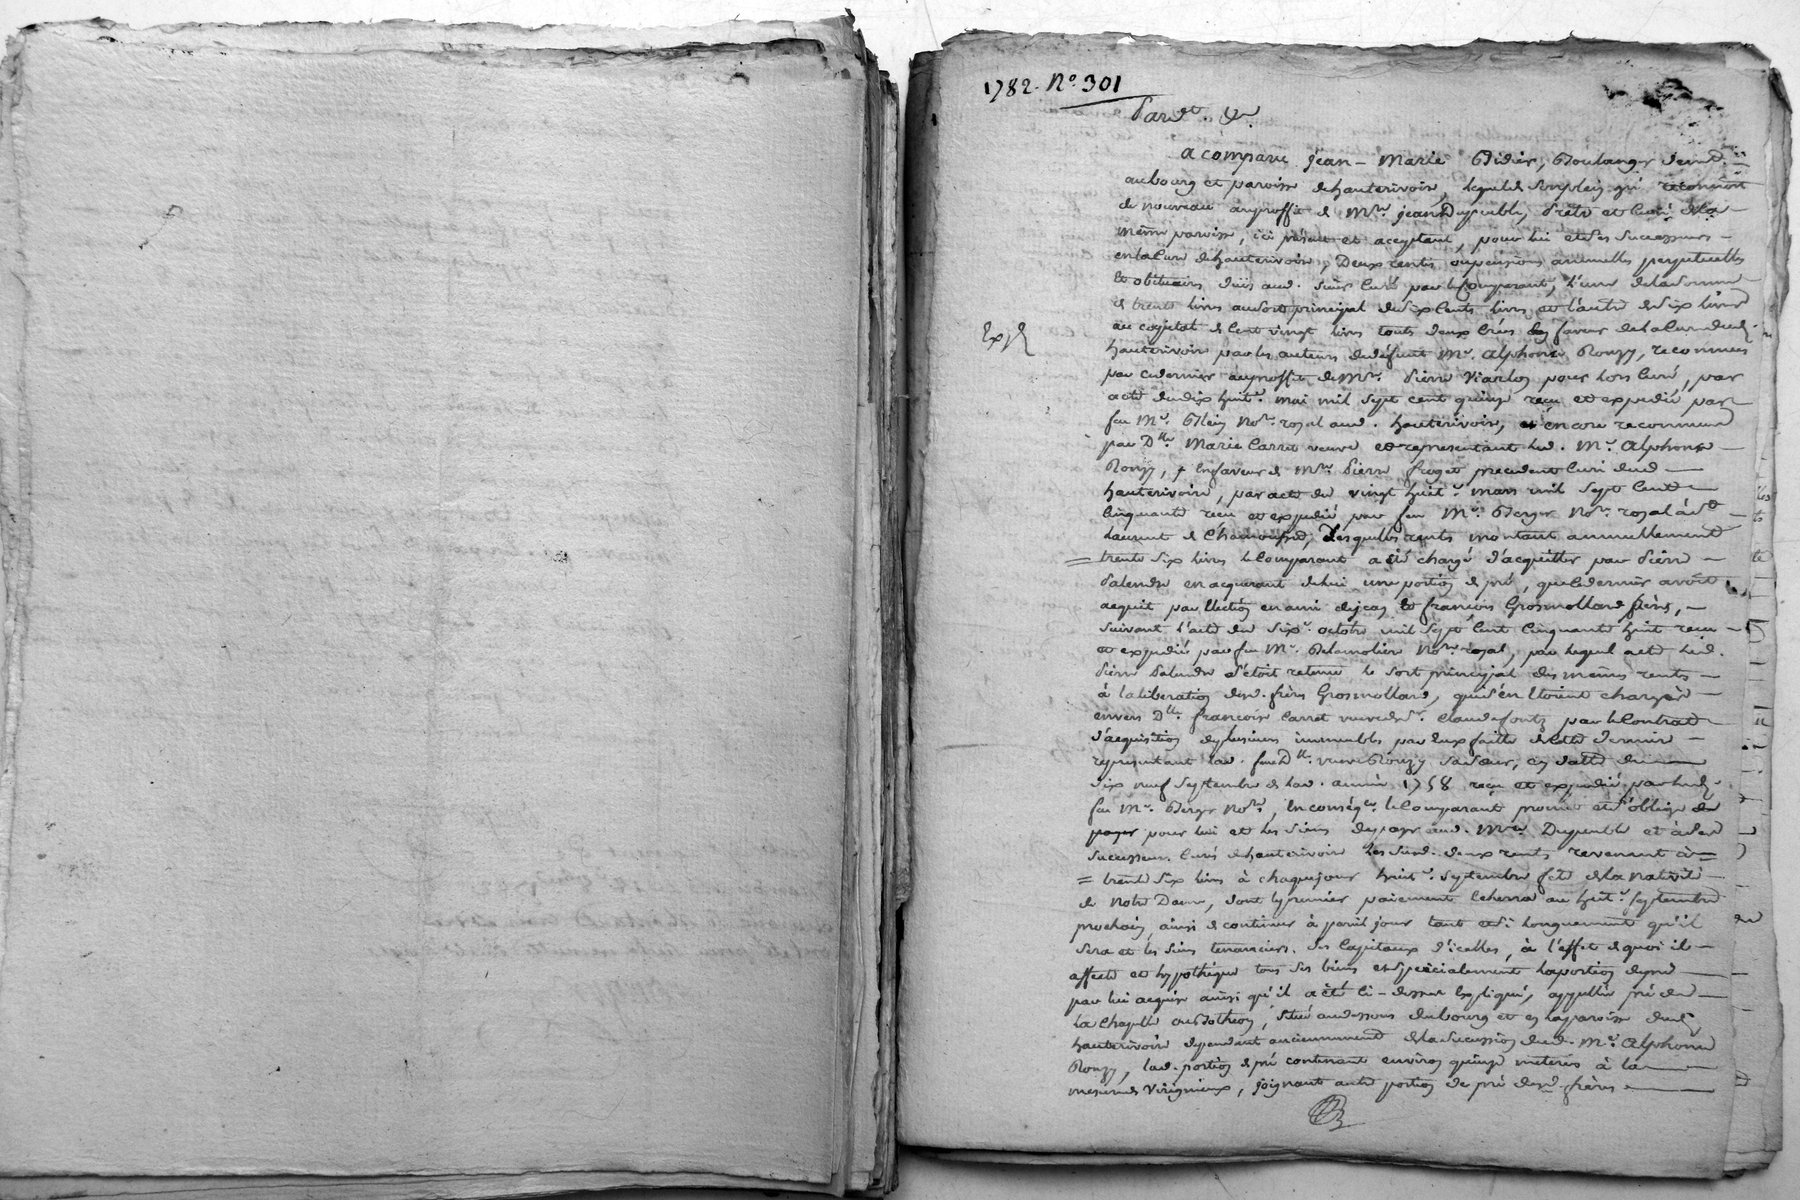 1782. N.º 301
Pardt. &a.
a comparu jean-marie Didier, Boulanger demt.
au bourg et paroisse de hauterivoire, lequel de son plein gré reconnoit
de nouveau au proffit de Mre. jean Dupeuble, Prêtre et Curé de la
même paroisse, ici présent et aceptant, pour lui et ses Sucesseurs
en la Cure de hauterivoire, Deux rentes ou pensions annuelles perpetuelles
et obituaires dües aud. Sieur Curé par le Comparant, l'une de la Somme
de trente livres au Sort principal de Six Cents livres et l'autre de Six livres
au capital de Cent vingt livres toutes deux Crées en faveur de la Cure dud.
Exp.
hauterivoire par les auteurs de défunt Me. alphonse Rouzy, reconnues
par ce dernier au proffit de Mre. Pierre Viarlos pour lors Curé, par
acte du dix huit. mai mil Sept cent quinze reçu et expedié par
feu Me. Blein Nore. royal aud. hauterivoire, et encore reconnues
par Dlle. Marie Carret veuve et representant led. Me. Alphonse
Rouzy, en faveur de Mre. Pierre froget precedent Curé dud.
hauterivoire, par acte du vingt huit. mars mil Sept Cent
Cinquante reçu et expedié par feu Me. Berger Nore. royal à St.
Laurent de Chamousset, Desquelles rentes montant annuellement
= trente Six livres le Comparant a été chargé d'acquitter par Pierre
Palendre en acquerant de lui une portion de pré, que ce dernier avoit
acquit par Election en ami de jean et françois Grosmollard frères,
suivant l'acte du Six. octobre mil Sept Cent Cinquante huit reçu
et expedié par feu Me. Delamoliere Nore. royal, par lequel acte led.
Pierre Palendre s'étoit retenu le Sort principal des mêmes rentes
à la liberation desd. frères Grosmollard, qui s'en étoient chargés
envers Dlle. françoise Carret veuve de Sr. Claude fontz par le Contrat
d'acquisition de plusieurs immeubles par Eux faitte de cette derniere
representant lad. feue Dlle. veuve Rouzy sa Sœur, en datte du
dix neuf Septembre de lad. année 1758 reçu et expedié par led.
feu Me. Berger Nore., En conséqce. le Comparant promet et s'oblige de
payer pour lui et les Siens de payer aud. Mre. Dupeuble et à Ses
Sucesseurs Curés de hauterivoire les Susd. deux rentes revenant à
= trente Six livres à chaque jour huit. Septembre fête de la nativité
de Notre Dame, dont le premier paiement Echerra au huit. Septembre
prochain, ainsi de continuer à pareil jour tant et Si longuement qu'il
Sera et les Siens tenanciers des Capitaux d'icelles, à l'effet de quoi il
affecte et hypothèque tous Ses biens et Spécialement la portion de pré
par lui acquise ainsi qu'il a été ci-dessus Expliqué, appellée pré de
La Chapelle, Situé au dessous du bourg et en la paroisse dud.
hauterivoire dependant anciennement de la Sucession dud. Me. Alphonse
Rouzy, lad. portion de pré contenant environ quinze meterées à la
mesure de Virigneux, joignant autre portion de pré desd. frères